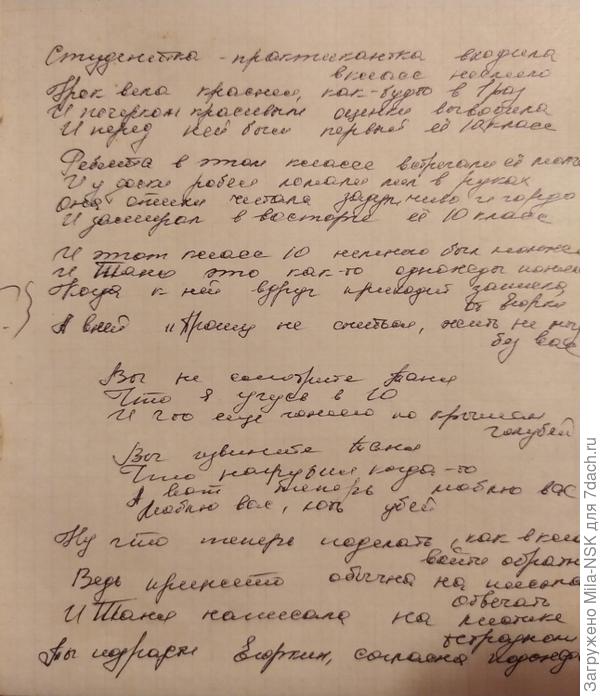 Студентка - практикантка входила
в класс несмело
Урок вела краснея, как-будто в 1 раз
И почерком красивым оценки выводила
И перед ней был первый её 10 класс
Ребята в этом классе встречали её
И у доски робея ломали мел в руках
Она стихи читала задумчиво и гордо
И замирал в восторге её 10 класс
И этот класс 10 немного был
И Таня это как-то однажды
Когда к ней вдруг приходит записка
от Егорки
А в ней "Прошу не смеяться, жить не могу
без вас
Вы не смотрите Таня
Что я учусь в 10
И что ещё гоняю по крышам
голубей
Вы извините Таня
Что нагрубил когда-то
А вот теперь люблю вас
Люблю вас, хоть убей
Ну что теперь поделать, как в класс
войти обратно
Ведь принято обычно на письма
отвечать
И Таня написала на листике
тетрадном
Ты подрасти Егоркин, согласна подождать
Загружено Mila-NSK для 7dach.ru